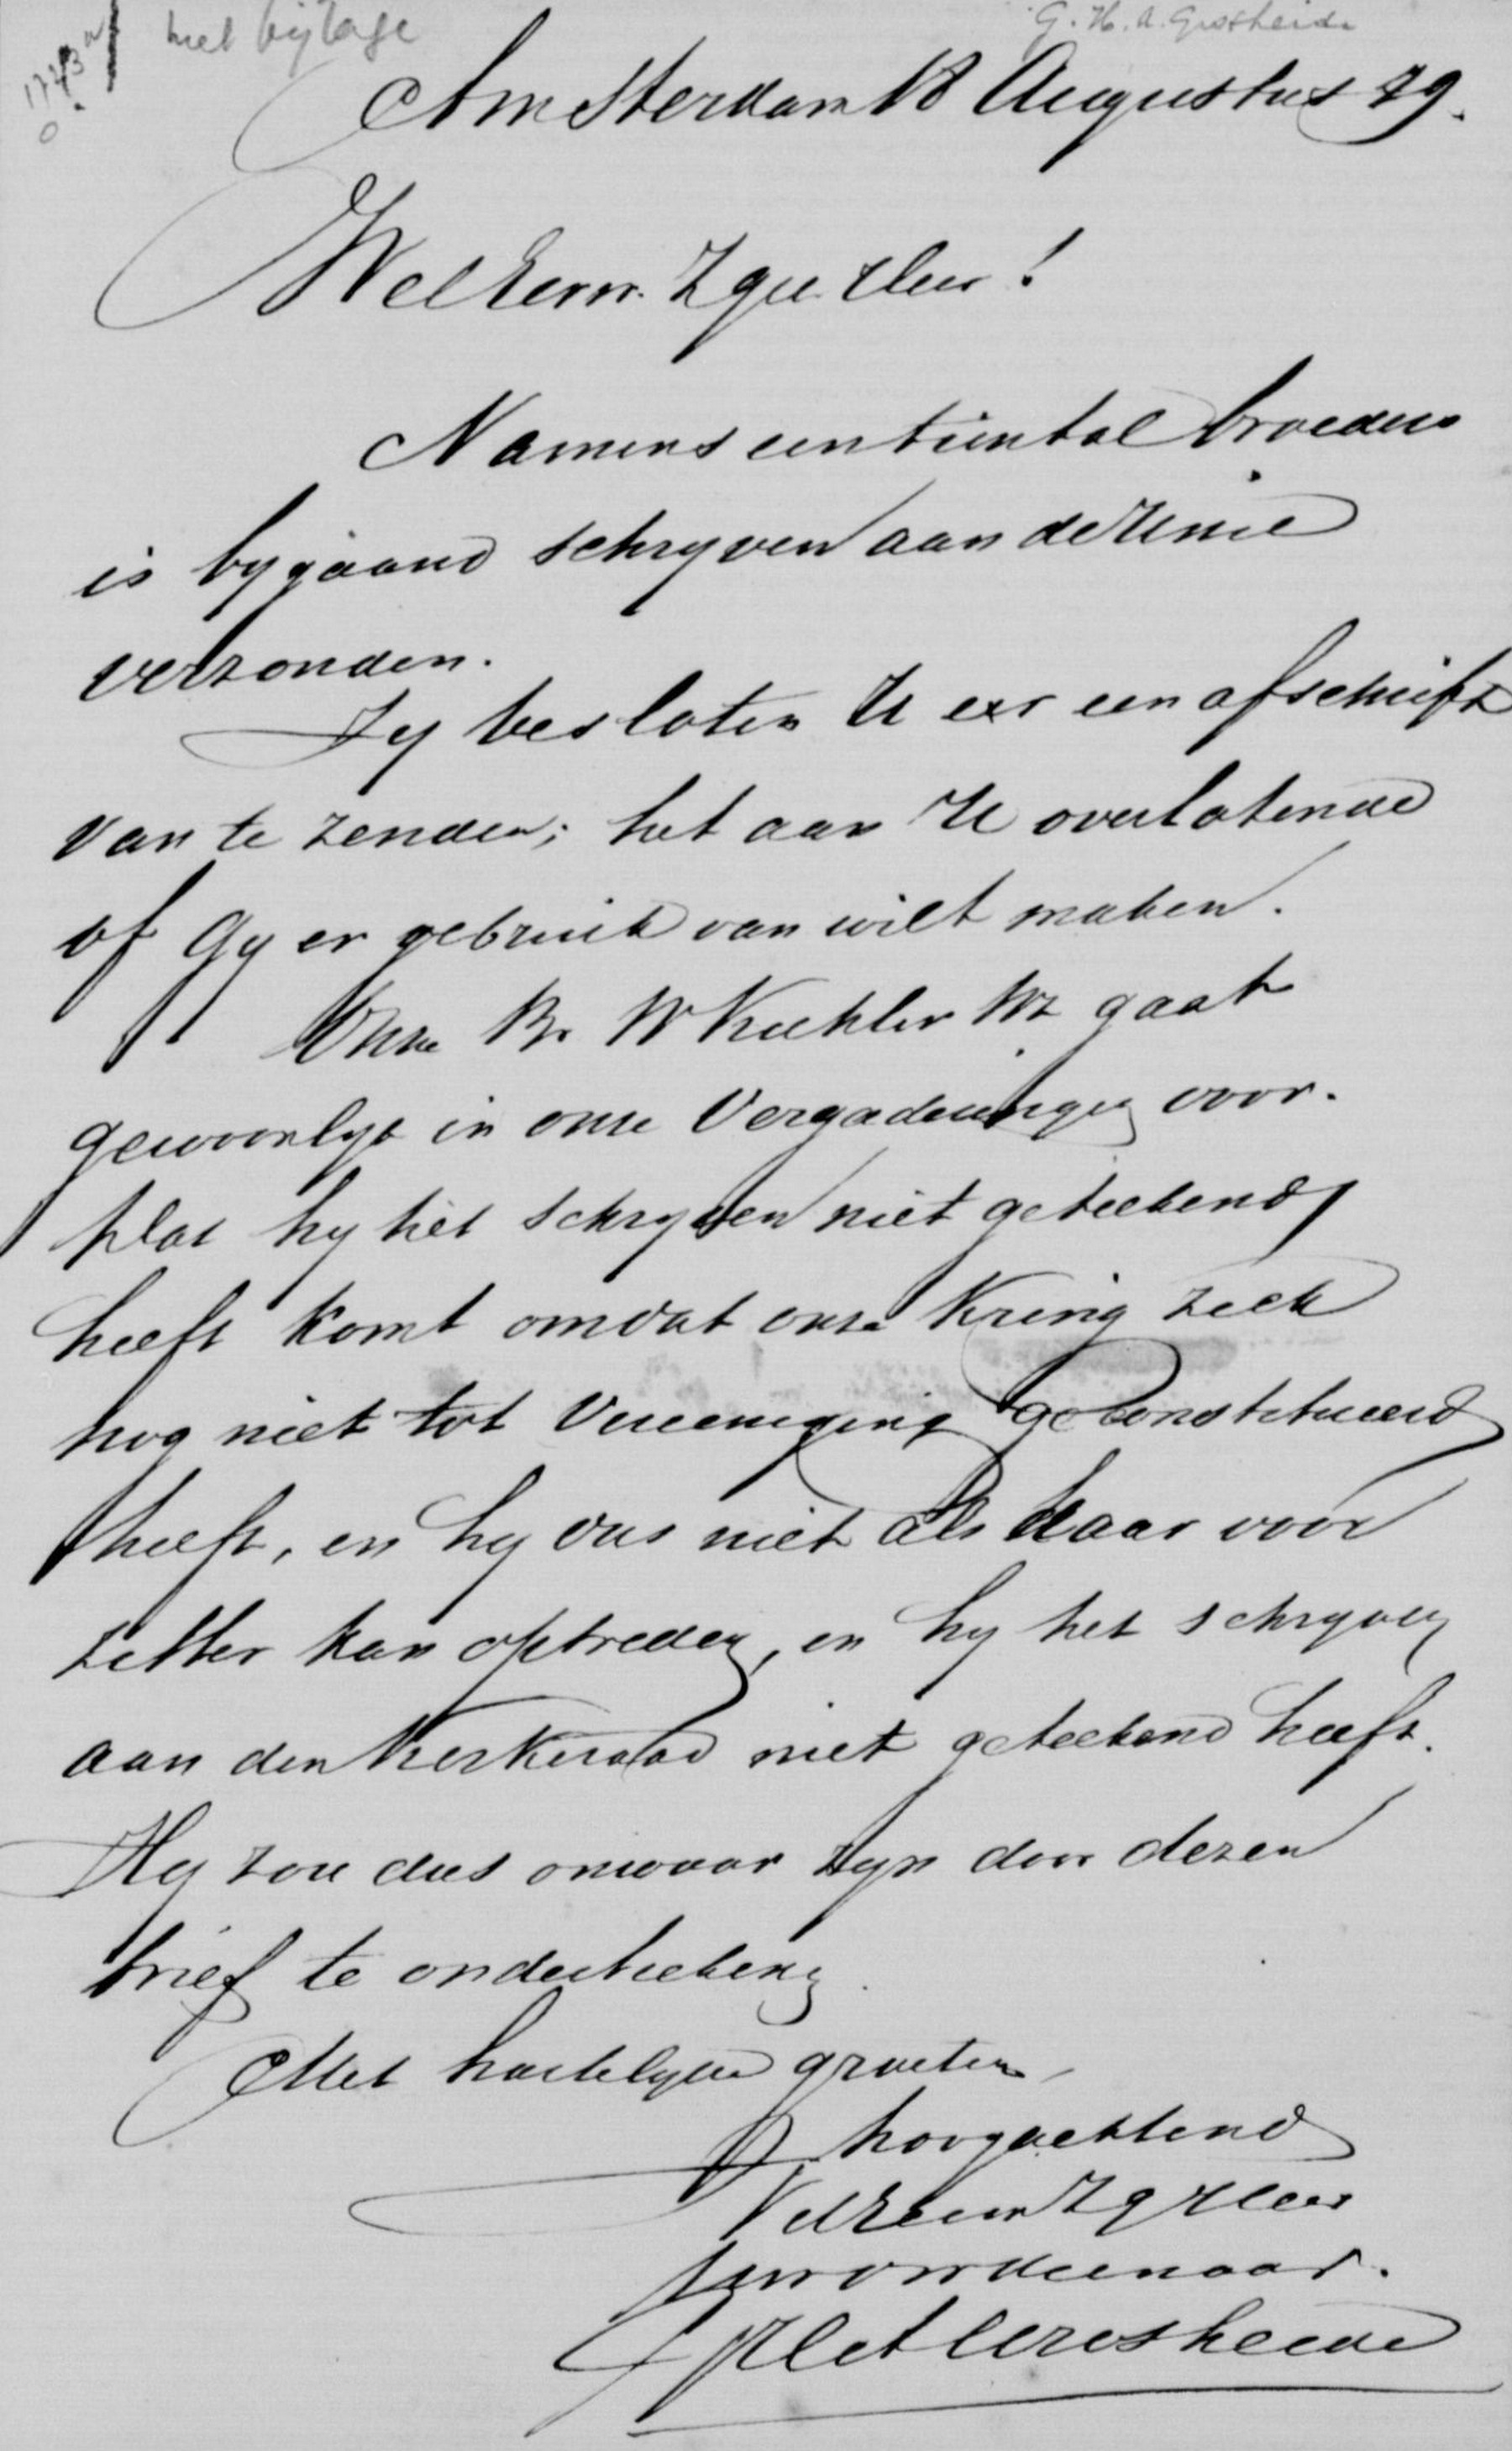 met bijlage
G. H. A. Grosheide
Amsterdam 18 Augustus 79.
WelEerw. Zgel. Heer!
Namens een tiental broeders
is bygaand schryven aan de Unie
verzonden.
Zy besloten U er een afschrift
van te zenden; het aan U overlatende
of Gy er gebruik van wilt maken.
Onze Br. W Kuhler Wz gaat
gewoonlyk in onze Vergaderingen voor.
Dat hy het schryven niet geteekend
heeft komt omdat onze Kring zich
nog niet tot Vereeniging geconstitueerd
heeft, en hy dus niet als haar voor
zitter kan optreden, en hy het schryven
aan den Kerkeraad niet geteekend heeft.
Hy zou dus onwaar zyn door dezen
brief te onderteekenen.
Met hartelyke groeten,
hoogachtend
WelEerw Zg Heer
Uw dw dienaar.
GHA Grosheide